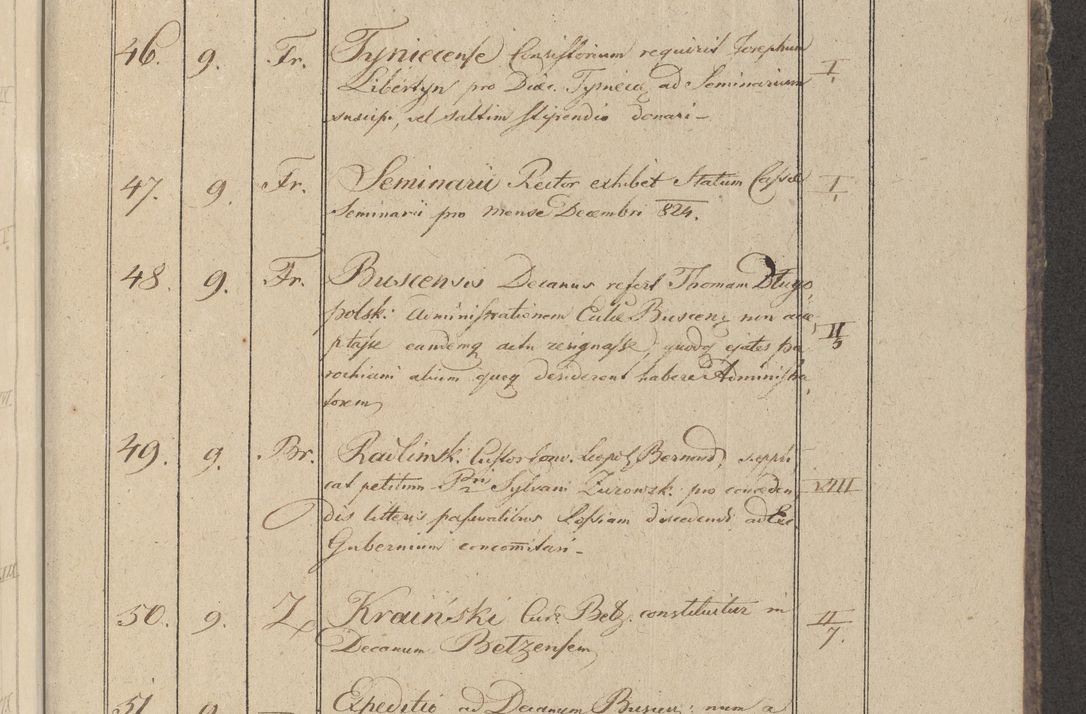 46. 9. Fr. Tyniecense Consistorium requirit Josephum I
Libertyn pro Dioec. Tyniecq ad Seminarium
suscipi, vel saltim stipendio donari –
47. 9. Fr. Seminarii Rector exhibet Statum Cassae I
Seminarii pro mense Decembri 824.
48. 9. Fr. Buscensis Decanus refert Thomam Dlugo
polski Administrationem Buscen non acce II/5
ptasse eamdemq actu resignasse, quodq ejates pa
rochiani alium quoq desiderent habere Administra
torem
49. 9. Br. Conv. Leopol Bernard, suppli
cat petitum Pris Sylvani Zurowski pro conceden VIII
dis litteris passualibus discedendi ad Exc
Gubernium concomitari –
50. 9. Z Kraiński Cur. Betz. constituitur in II/7.
Decanum Betzensem
51. 9. – Expeditio ad Decanum Buscen: num a